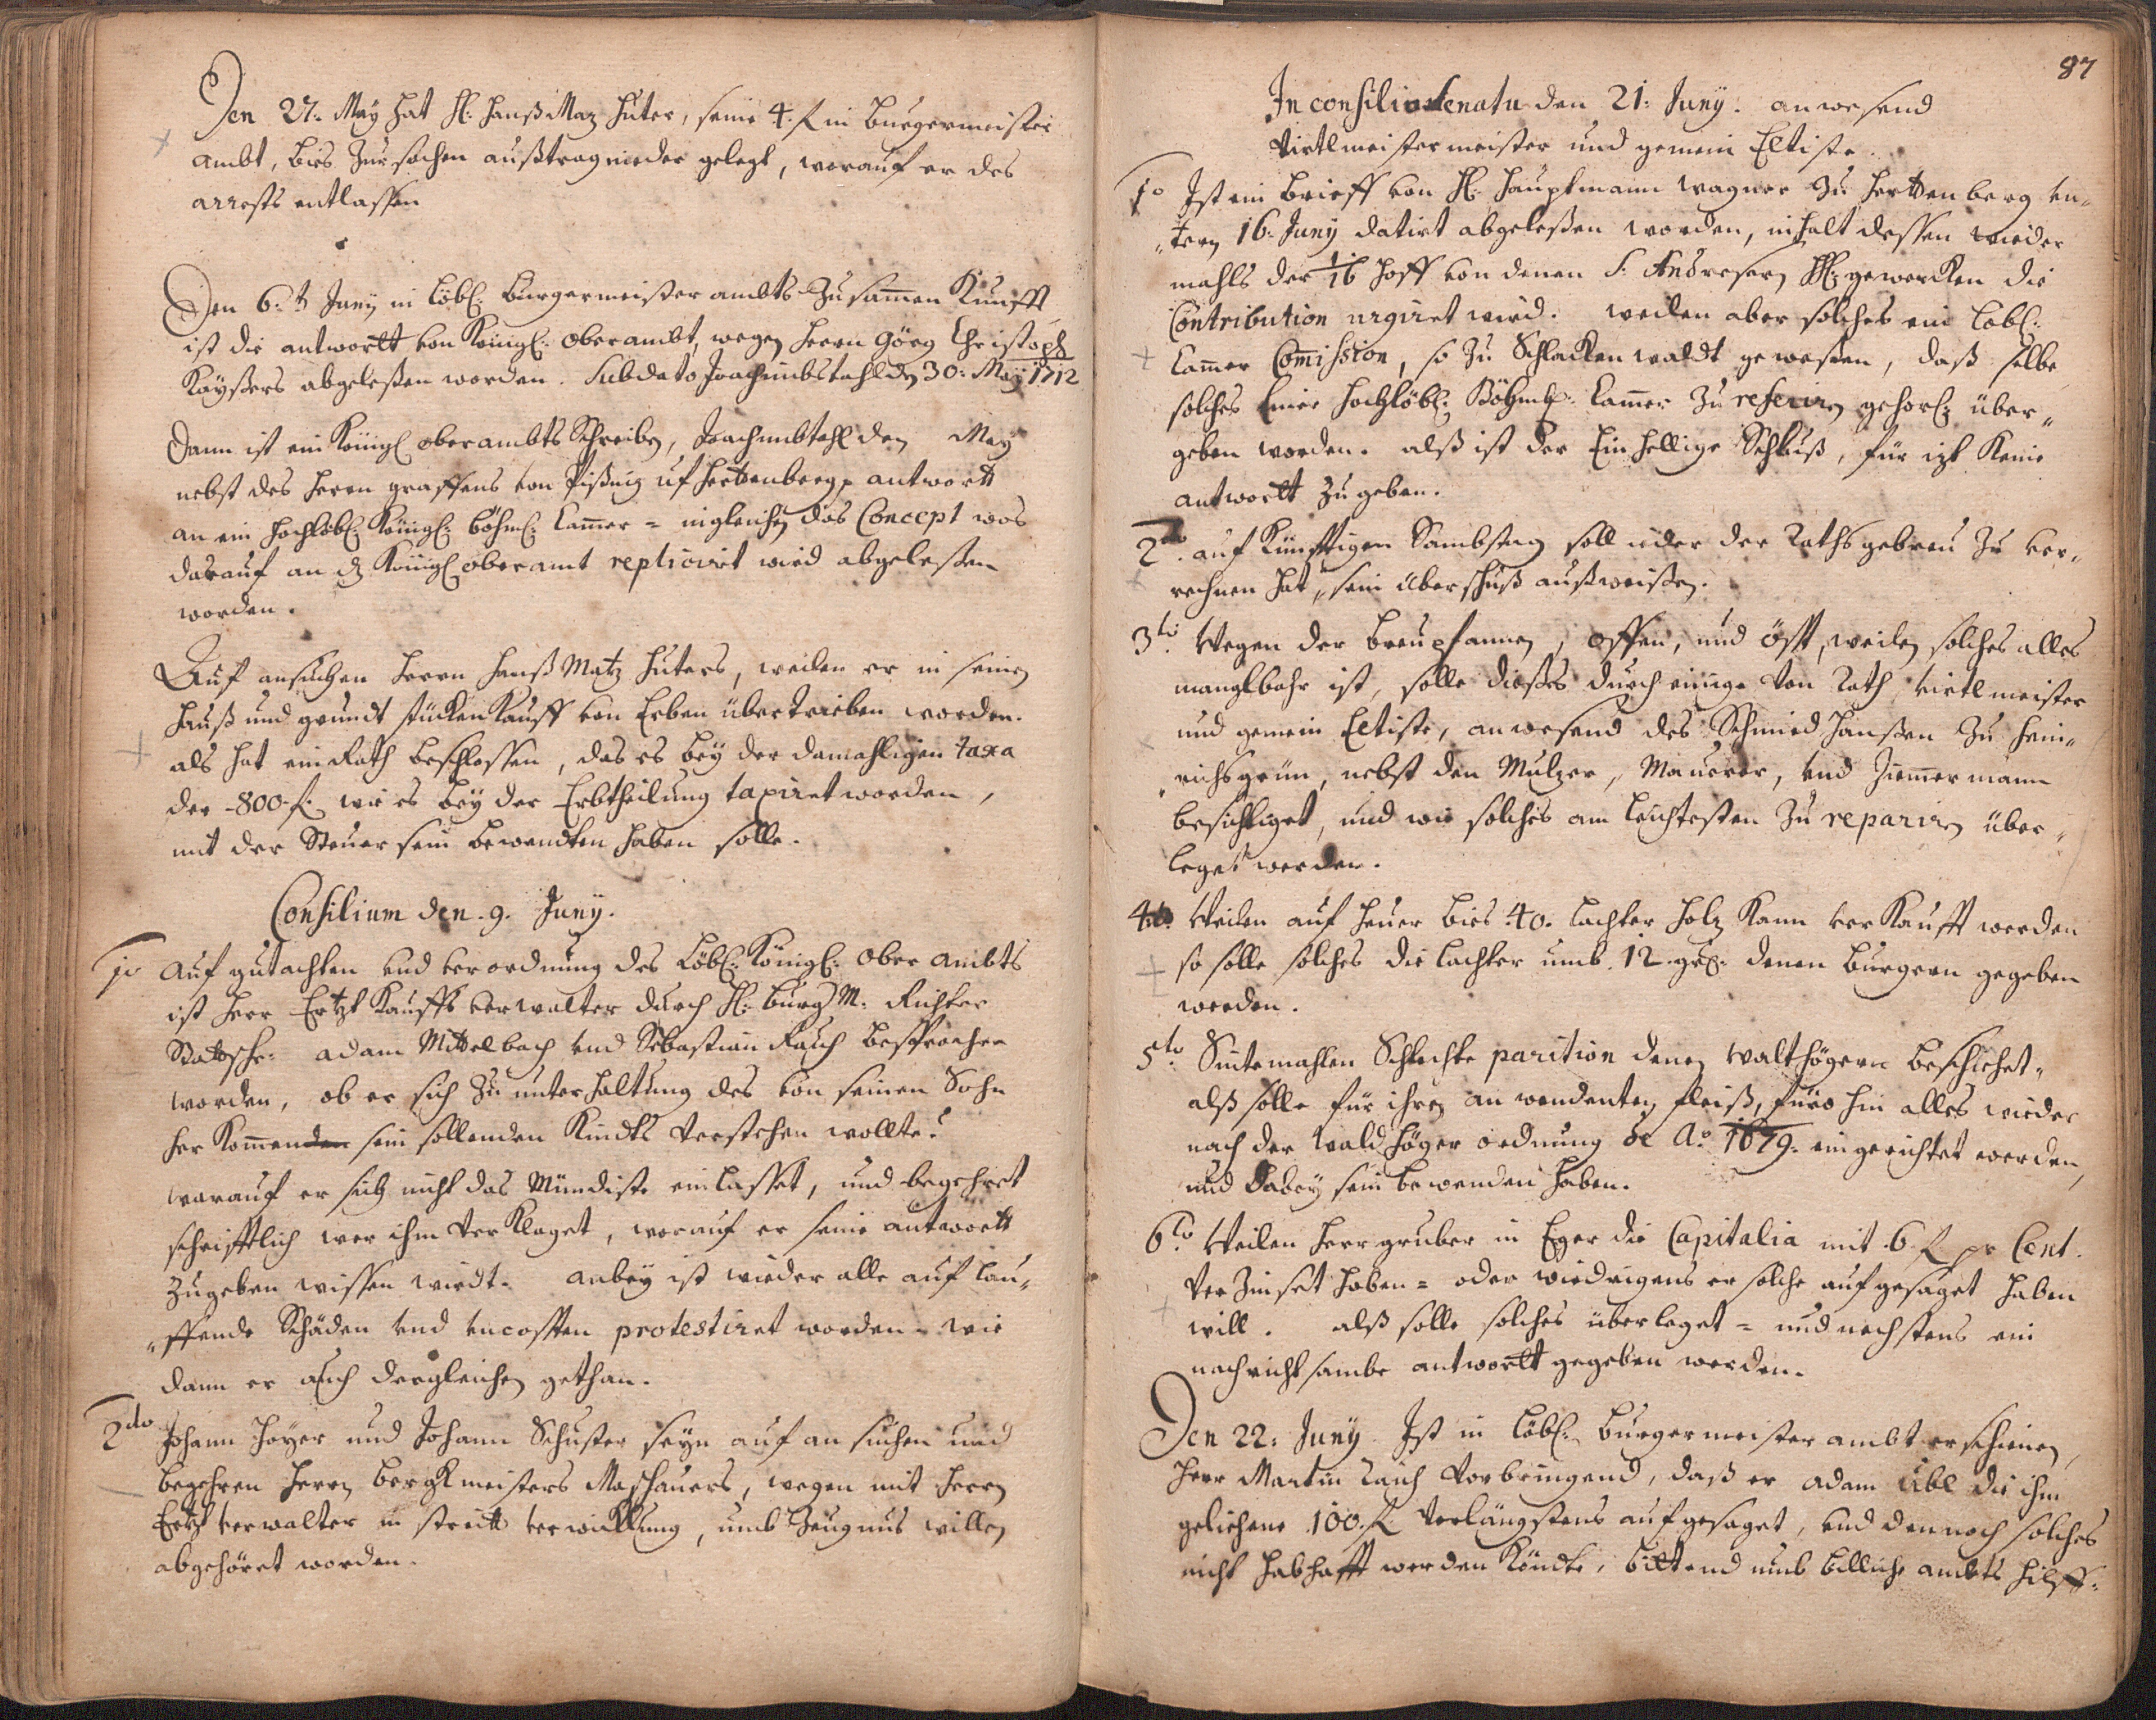 Den 27. May hat H: Hanß Maz Huter, seine 4. f in Burgermeister
ambt, bies zur sachen außtrag nieder gelegt, worauf er des
arrests entlassen
Den 6.t Juny in löbl: Burgermeister ambts Zusamen Kunfft
ist die antwortt von Königl: Oberambt, wegen Herrn Görg Christoph
Kayßers abgeleßen worden. Sub dato Joachimbstahl den 30: May 1712
Dann ist ein Königl oberambts Schreiben, Joachimbtahl den May
nebst des Herrn graffens von uf Herttenberg antwortt
an ein Hochlöbl: Königl: böhml: Camer = ingleichen das Concept was
darauf an d Königl oberamt replicirt wird abgeleßen
worden.
Auf ansuchen Herrn Hanß Matz Huters, weilen er in seinen
Hauß und grundt stücken Kauff von Erben übertrieben worden.
als hat ein Rath beschlossen, das es bey der damahligen taxa
der 800 f. wie es bey der Erbtheilung taxiret worden,
mit der Steuer sein bewendten haben solle.
Consilium den 9. Juny.
1o Auf gutachten und verordnung des Löbl: Königl: Ober ambts
ist Herr Ertzt Kauffs verwalter durch H: Burg M: Richter
Stattschr: Adam Mittelbach und Sebastian Rauch besprochen
worden, ob er sich zu unterhaltung des von seinen Sohn
her Komenden sein sollenden Kindts verstehen wollte?
warauf er sich nicht das Mündiste einlasset, und begehret
schrifftlich wer ihm verklaget, worauf er seine antwortt
zugeben wissen wirdt. anbey ist wieder alle auf lau„
„ffende Schäden und uncosten protestiret worden. wie
dann er auch dergleichen gethan.
2do Johann Hoyer und Johann Schuster seyn auf ansuchen und
begehren Herrn Bergkmeisters Maschauers, wegen mit Herrn
Ertzt verwalter in stritt verwicklung, umb Zeugnus willen
abgehöret worden.
87
In consilio Senatu den 21: Juny. anwesend
Virtlmeister meister und gemein Eltiste
1o Ist ein brieff von H: Hauptmann Wagner zu Herttenberg un„
„term 16. Juny datirt abgeleßen worden, inhalt dessen wieder
mahls der 1/16 Hoff von denen S: Andreser HH: gewercken die
Contribution urgiret wird. weilen aber solches ein löbl:
Camer Comission, so zu Schlackenwaldt geweßen, daß selbe
solches Einer Hochlöbl: Böhml: Camer zu referiren gehors: über„
geben worden. alß ist der Einhellige Schluß, für izt Keine
antwortt zu geben.
2do. auf Künfftigen Sambstag soll ieder der Rathsgebreu zu ver„
rechnen hat, sein überschuß außweißen.
3tio Wegen der Breupfannen, Offen, und öst, weilen solches alles
manglbahr ist, solle dießes durch einige Von Rath, Virtlmeister
und gemein Eltiste, anwesend des Schmied Hanßen zu Hein„
„richsgrün, nebst den Mulzer, Maurer, und Zimmermann
besichtiget, und wie solches am leichtesten zu repariren über„
leget werden.
4to Weilen auf heuer bies 40. lachter Holz Kann ver Kaufft werden
so solle solches die lachter umb 12 gr: denen Burgern gegeben
werden.
5to Sintemahlen Schlechte parition denen Walthögern beschiehet„
alß solle für ihren anwendenten fleiß, füro hin alles wieder
nach der Waldhöger ordnung de Ao 1679. eingerichtet werden,
und dabey sein bewenden haben.
6to Weilen Herr gruber in Eger die Capitalia mit 6 f pr Cent.
Verzinset haben = oder wiedrigens er solche auf gesaget haben
will. alß solle solches überleget = und nechstens ein
nachrichtsambe antwortt gegeben werden.
Den 22: Juny Ist in löbl: Burgermeister ambt erschienen,
Herr Martin vorbringend, daß er Adam Übl die ihm
geliehene 100 f. Verlängstens aufgesaget, und dennoch solches
nicht habhafft werden Köndte, bittend umb billiche ambts Hilff.